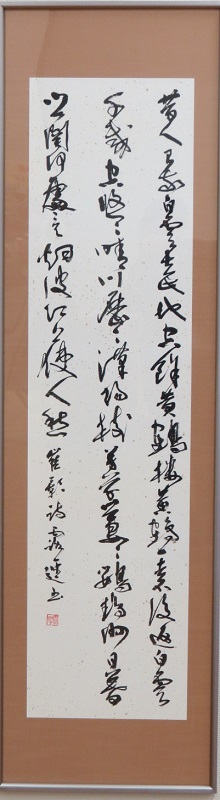 昔人已乘白雲去此地空餘黃鶴樓黃鶴一去不復返白雲
千載空悠々晴川歷々漢陽樹芳草萋々鸚鵡洲日暮
鄉關何處是烟波江上使人愁 崔顥詩 書